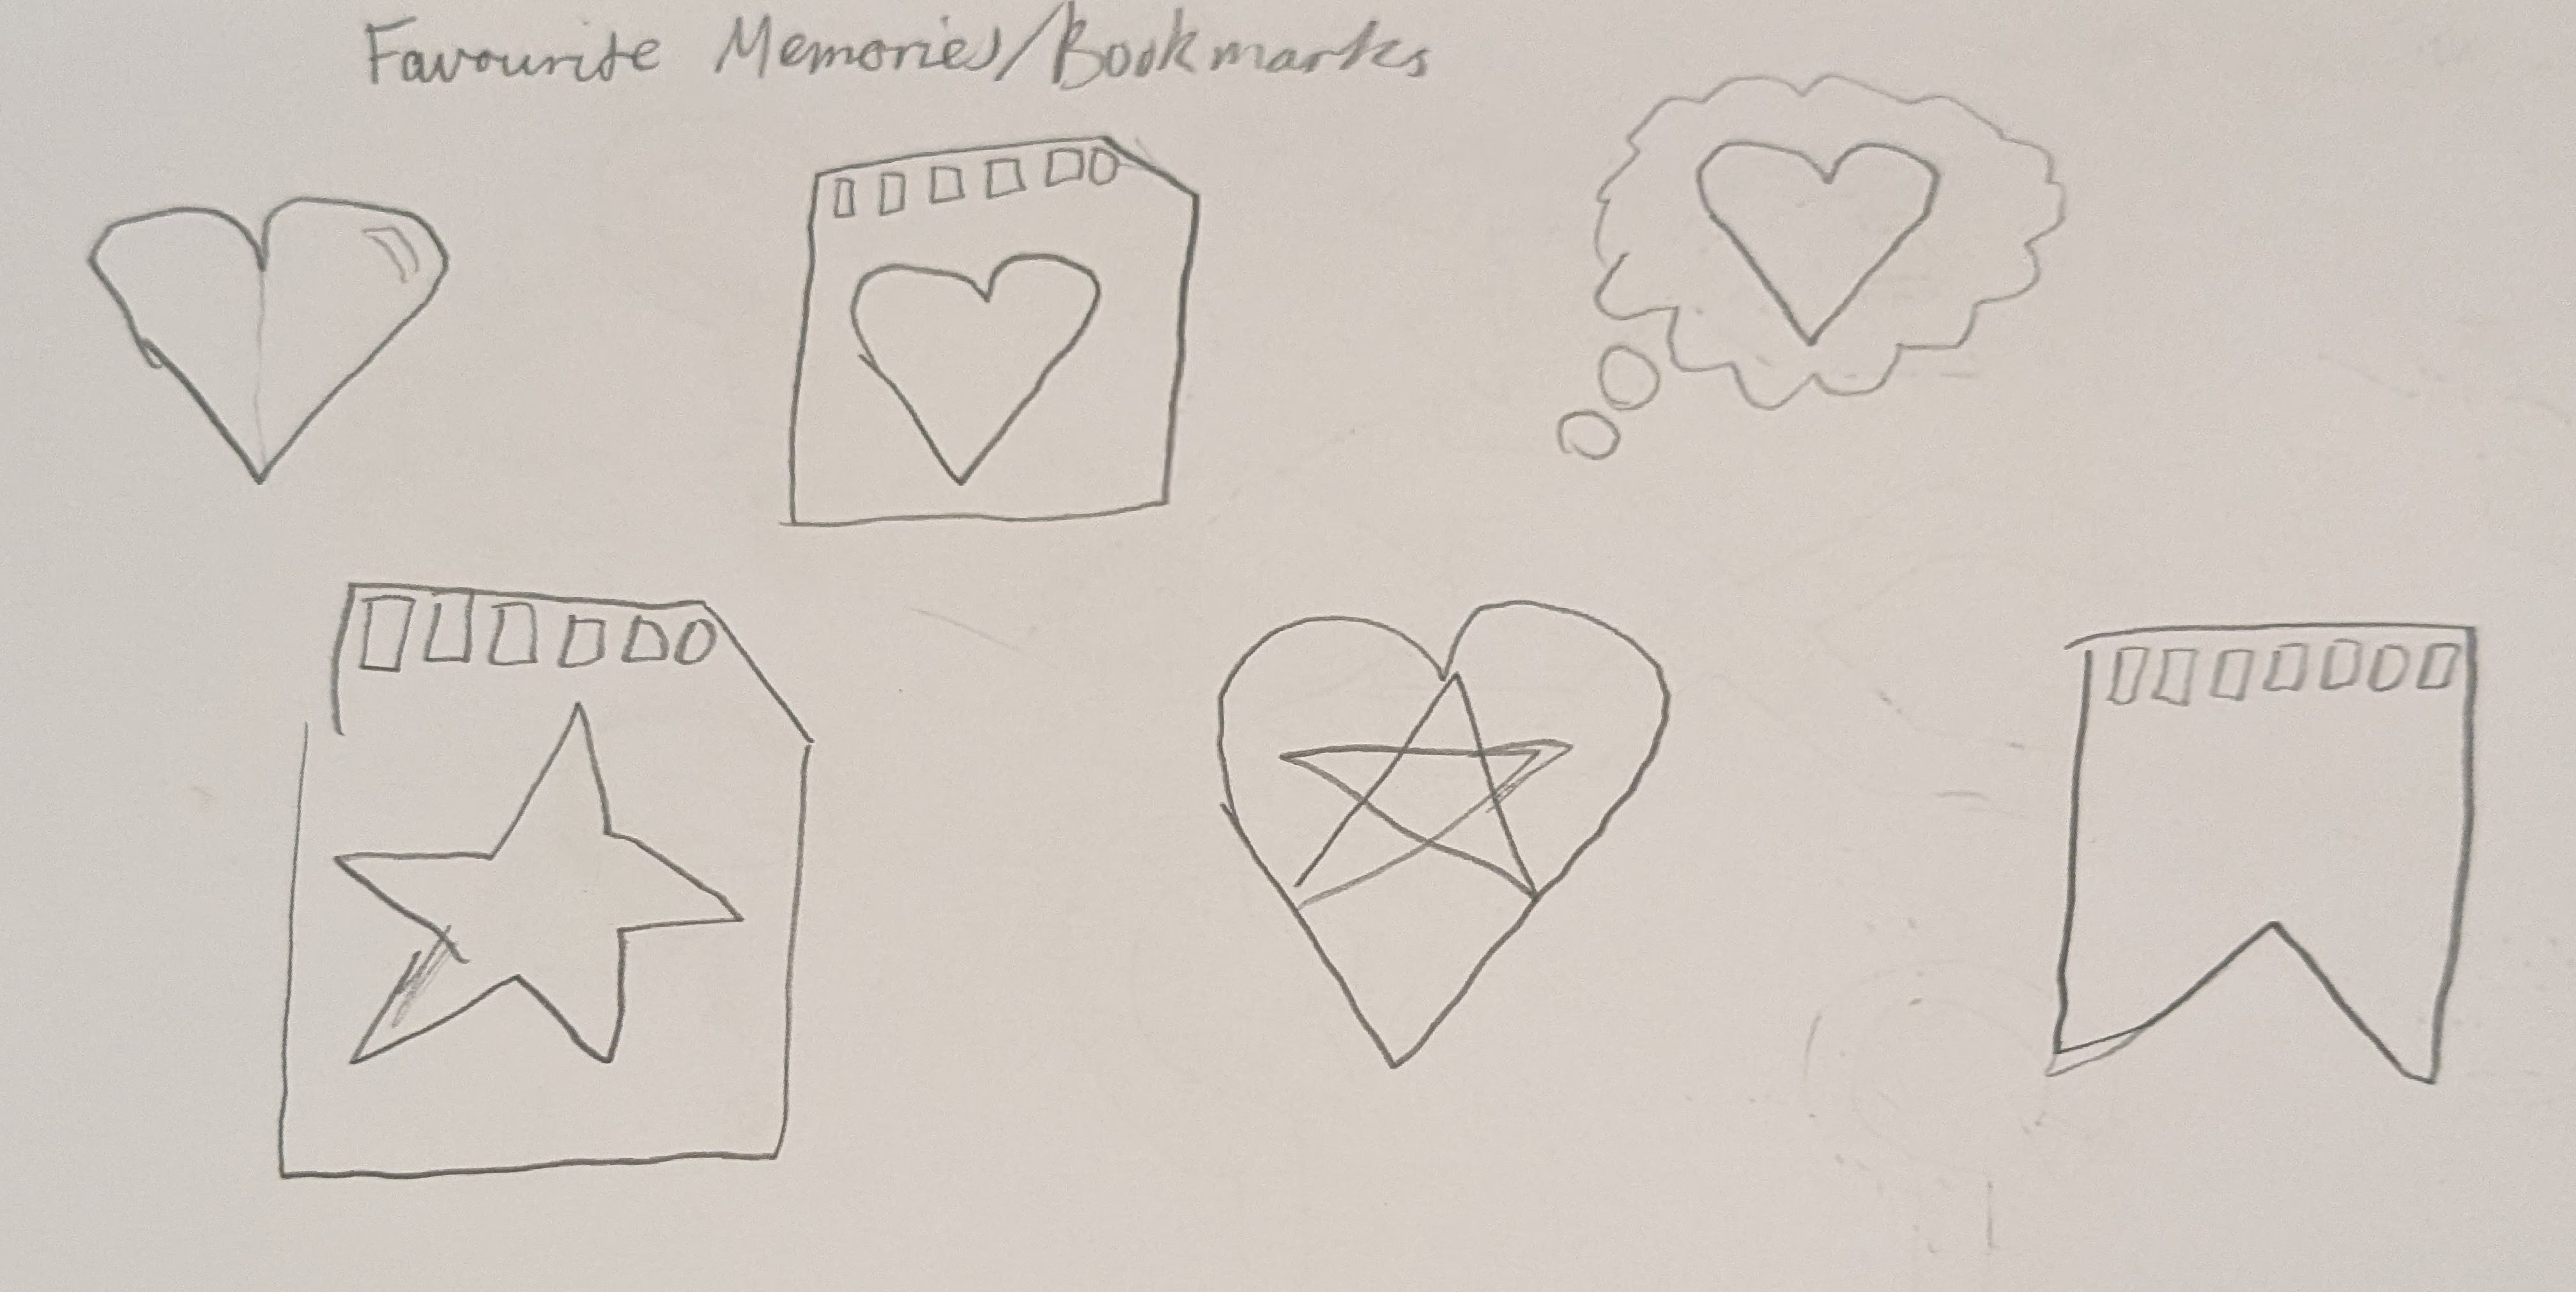 Favourite Memories/Bookmarks